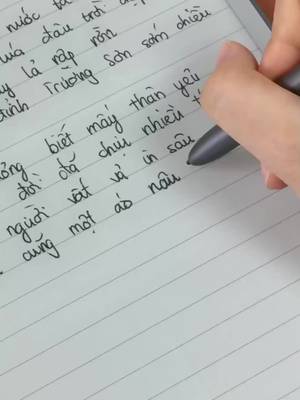 nước ta
đâu trời
lả rập rờn
đỉnh Trường Sơn sớm chiều
biết mấy thân yêu
đời đã chịu nhiều
người vất vả in sâu
cũng một áo nâu